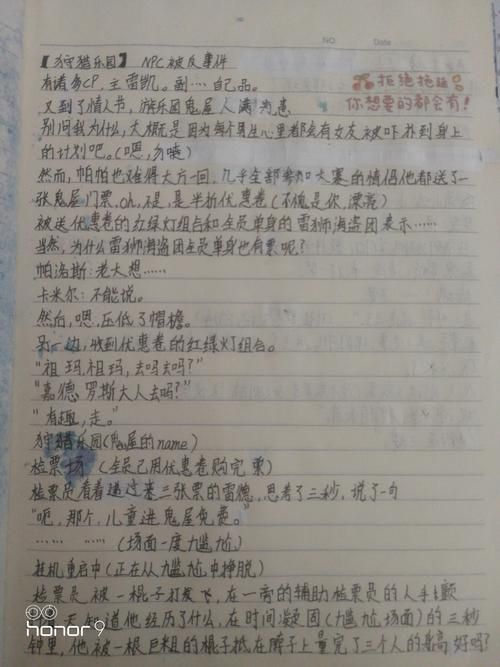 NO. Date
【狩猎乐园】 NPC被反事件
有诸多CP，主雷凯。副…… 自己品。
拒绝拖延
你想要的都会有！
又到了情人节，游乐园鬼屋人满为患
别问我为什么，大概是因为每个男生心里都会有女友被吓扑到身上
的计划吧。（嗯，勿喷）
然而，帕帕也难得大方一回，几乎全部参加大赛的情侣他都送了一
张鬼屋门票，oh，不，是，是半折优惠卷（不愧是你，漂亮）
被送优惠卷的红绿灯组合和全员单身的雷狮海盗团表示……
当然，为什么雷狮海盗团全员单身也有票呢？
帕洛斯：老大想……
卡米尔：不能说。
然后，嗯，压低了帽檐。
另一边，收到优惠卷的红绿灯组合。
“祖玛，祖玛，去吗去吗？”
“嘉德罗斯大人去吗？”
“有趣，走。”
狩猎乐园（鬼屋的name）
检票场（全员已用优惠卷购完票）
检票员看着递过来三张票的雷德，思考了三秒，说了一句
“呃，那个，儿童进鬼屋免费。”
…… ……（场面一度尴尬）
挂机重启中（正在从尴尬中挣脱）
检票员被一棍子打发飞，在一旁的辅助检票员的人手颤
天知道他经历了什么，在时间凝固（尴尬场面）的三秒
钟里，他被一根巨粗的棍子抵在脖子上量完了三个人的身高好吗？
honor 9